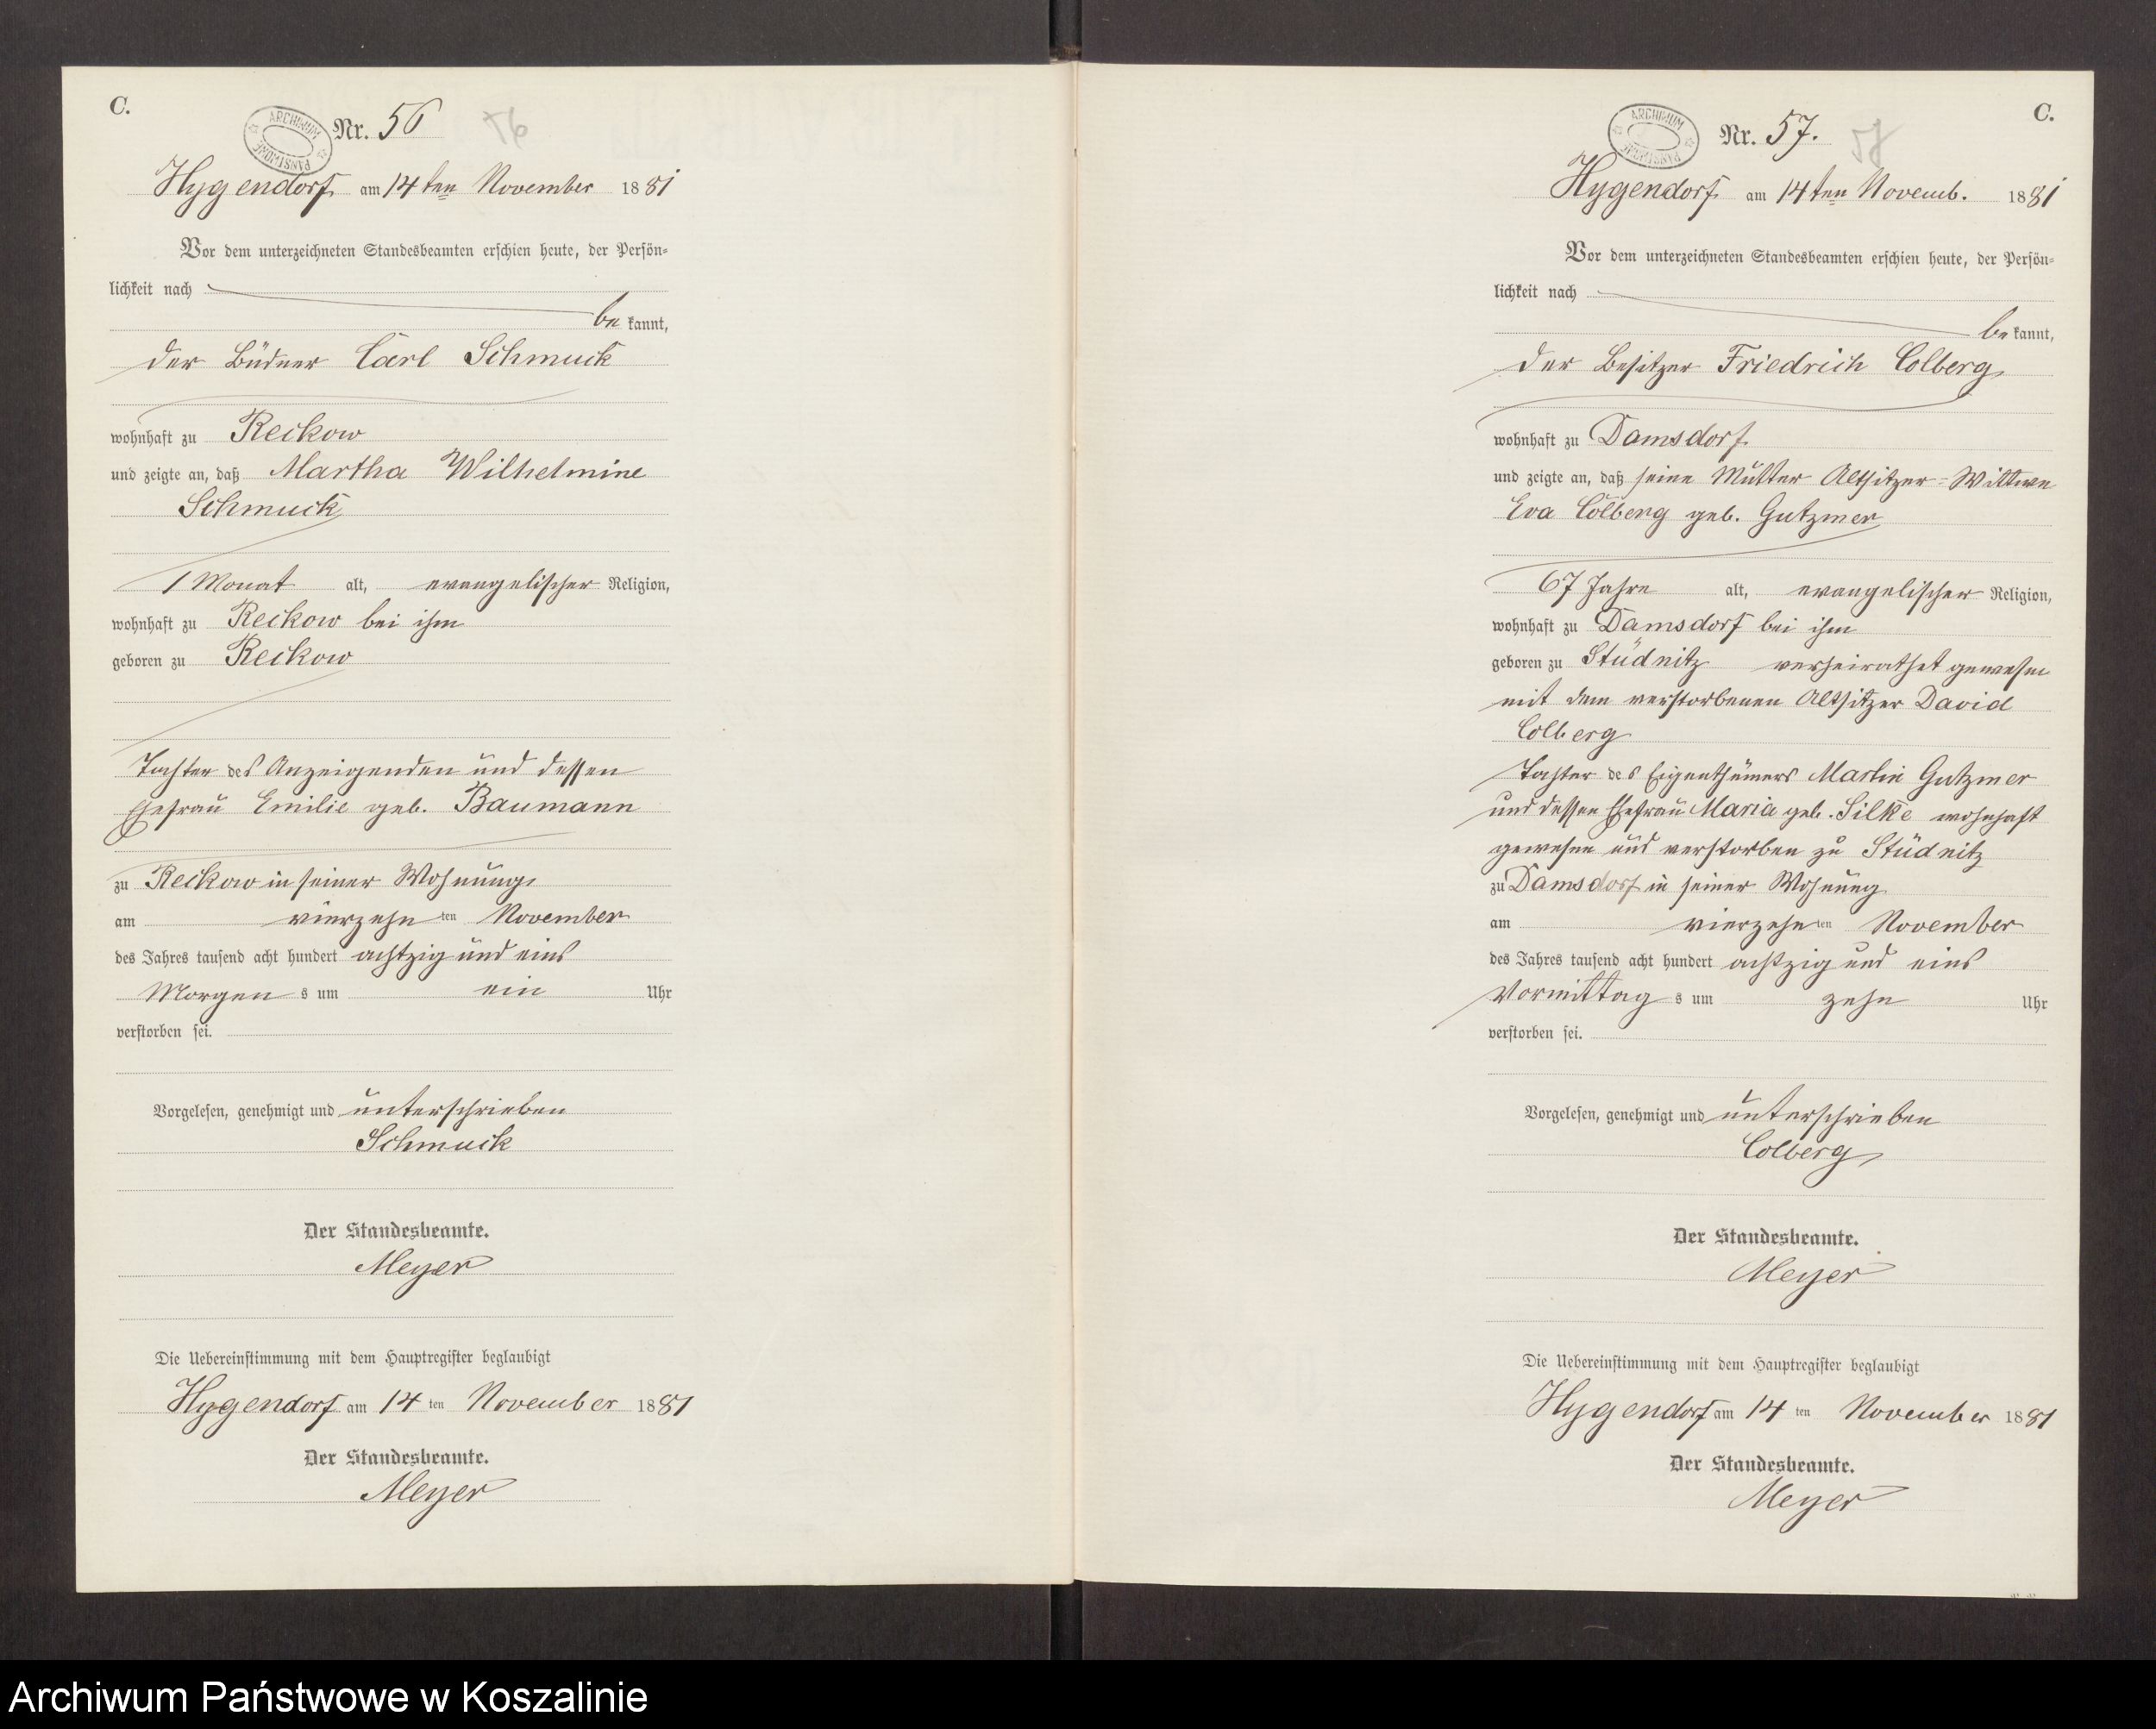 C.
ARCHIWUM PAŃSTWOWE
Nr. 56 56
Hygendorf am 14ten November 1881
Vor dem unterzeichneten Standesbeamten erschien heute, der Persön-
lichkeit nach
be kannt,
der Büdner Carl Schmuck
wohnhaft zu Reckow
und zeigte an, daß Martha Wilhelmine
Schmuck
1 Monat alt, evangelischer Religion,
wohnhaft zu Reckow bei ihm
geboren zu Reckow
Tochter des Anzeigenden und dessen
Ehefrau Emilie geb. Baumann
zu Reckow in seiner Wohnung
am vierzehn ten November
des Jahres tausend acht hundert achtzig und eins
Morgen s um ein Uhr
verstorben sei.
Vorgelesen, genehmigt und unterschrieben
Schmuck
Der Standesbeamte.
Meyer
Die Uebereinstimmung mit dem Hauptregister beglaubigt
Hygendorf am 14 ten November 1881
Der Standesbeamte.
Meyer
C.
ARCHIWUM PAŃSTWOWE
Nr. 57. 57
Hygendorf am 14ten Novemb. 1881
Vor dem unterzeichneten Standesbeamten erschien heute, der Persön-
lichkeit nach
be kannt,
der Besitzer Friedrich Colberg
wohnhaft zu Damsdorf
und zeigte an, daß seine Mutter Altsitzer-Wittwe
Eva Colberg geb. Gutzmer
67 Jahre alt, evangelischer Religion,
wohnhaft zu Damsdorf bei ihm
geboren zu Studnitz verheirathet gewesen
mit dem verstorbenen Altsitzer David
Colberg
Tochter des Eigenthümers Martin Gutzmer
und dessen Ehefrau Maria geb. Silke wohnhaft
gewesen und verstorben zu Studnitz
zu Damsdorf in seiner Wohnung
am vierzehn ten November
des Jahres tausend acht hundert achtzig und eins
Vormittag s um zehn Uhr
verstorben sei.
Vorgelesen, genehmigt und unterschrieben
Colberg
Der Standesbeamte.
Meyer
Die Uebereinstimmung mit dem Hauptregister beglaubigt
Hygendorf am 14 ten November 1881
Der Standesbeamte.
Meyer
Archiwum Państwowe w Koszalinie